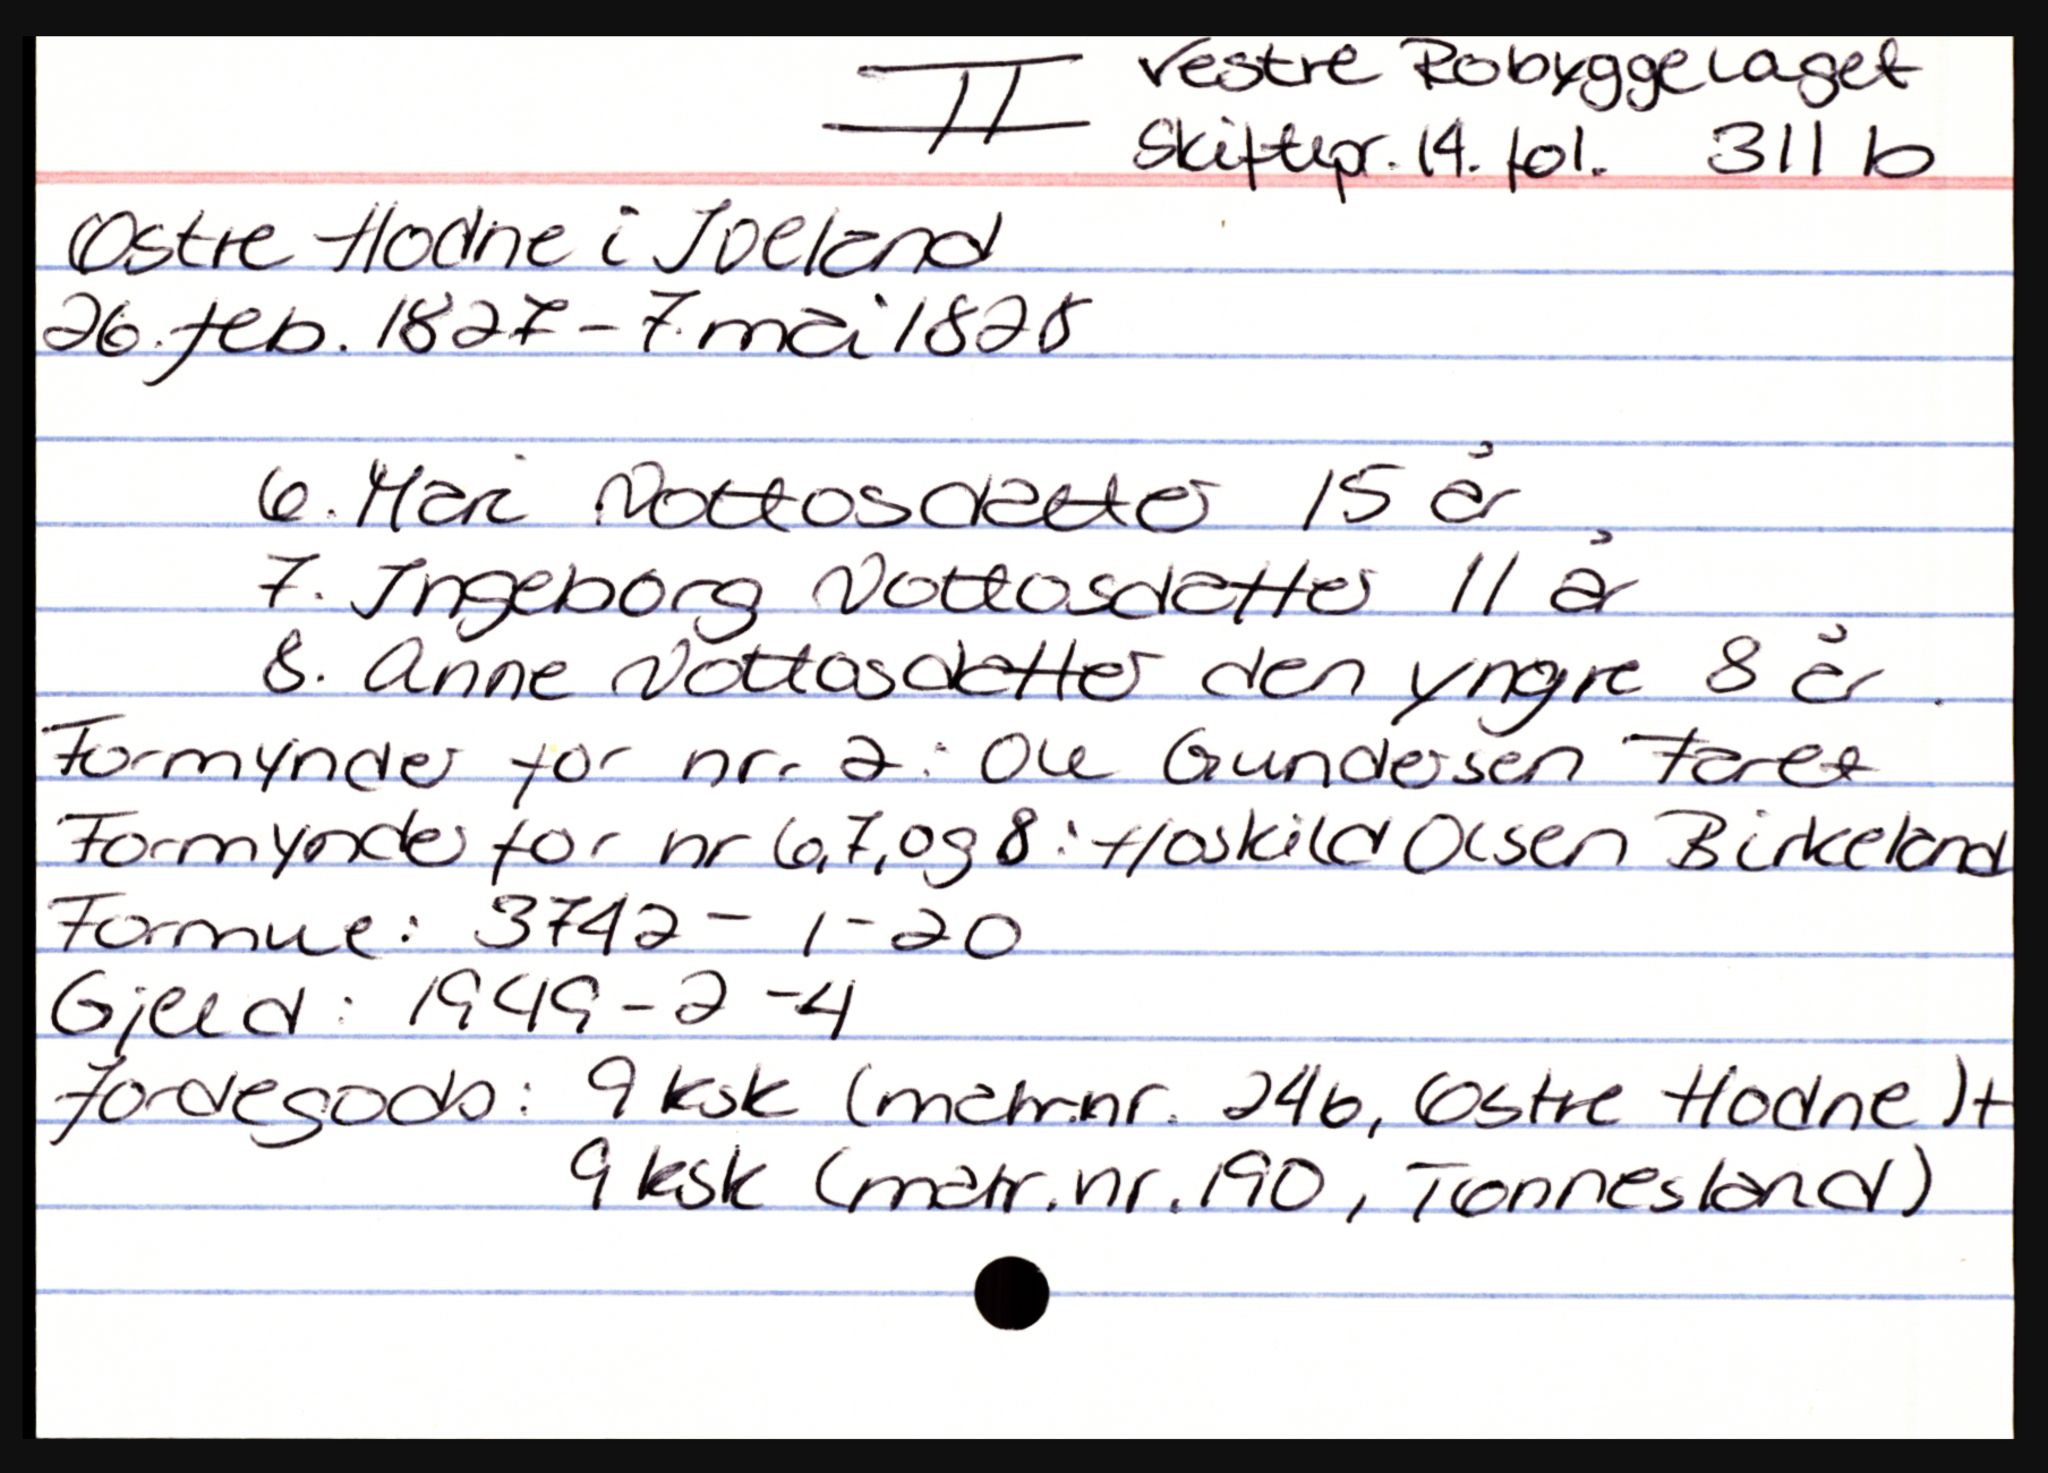 II Vestre Robyggelaget
Skiftepr. 14. fol. 311 b
Østre Hodne i Iveland
26. feb. 1827 - 7. mai 1828
6. Mari Vottosdatter 15 år
7. Ingeborg Vottosdatter 11 år
8. Anne Vottosdatter den yngre 8 år.
Formynder for nr. 2: Ole Gundersen Faret
Formynder for nr 6,7, og 8: Hoskild Olsen Birkeland
Formue: 3742 - 1 - 20
Gjeld: 1949 - 2 - 4
Jordegods: 9 ksk (matr.nr. 246, Østre Hodne) +
9 ksk (matr.nr. 190, Tønnesland)